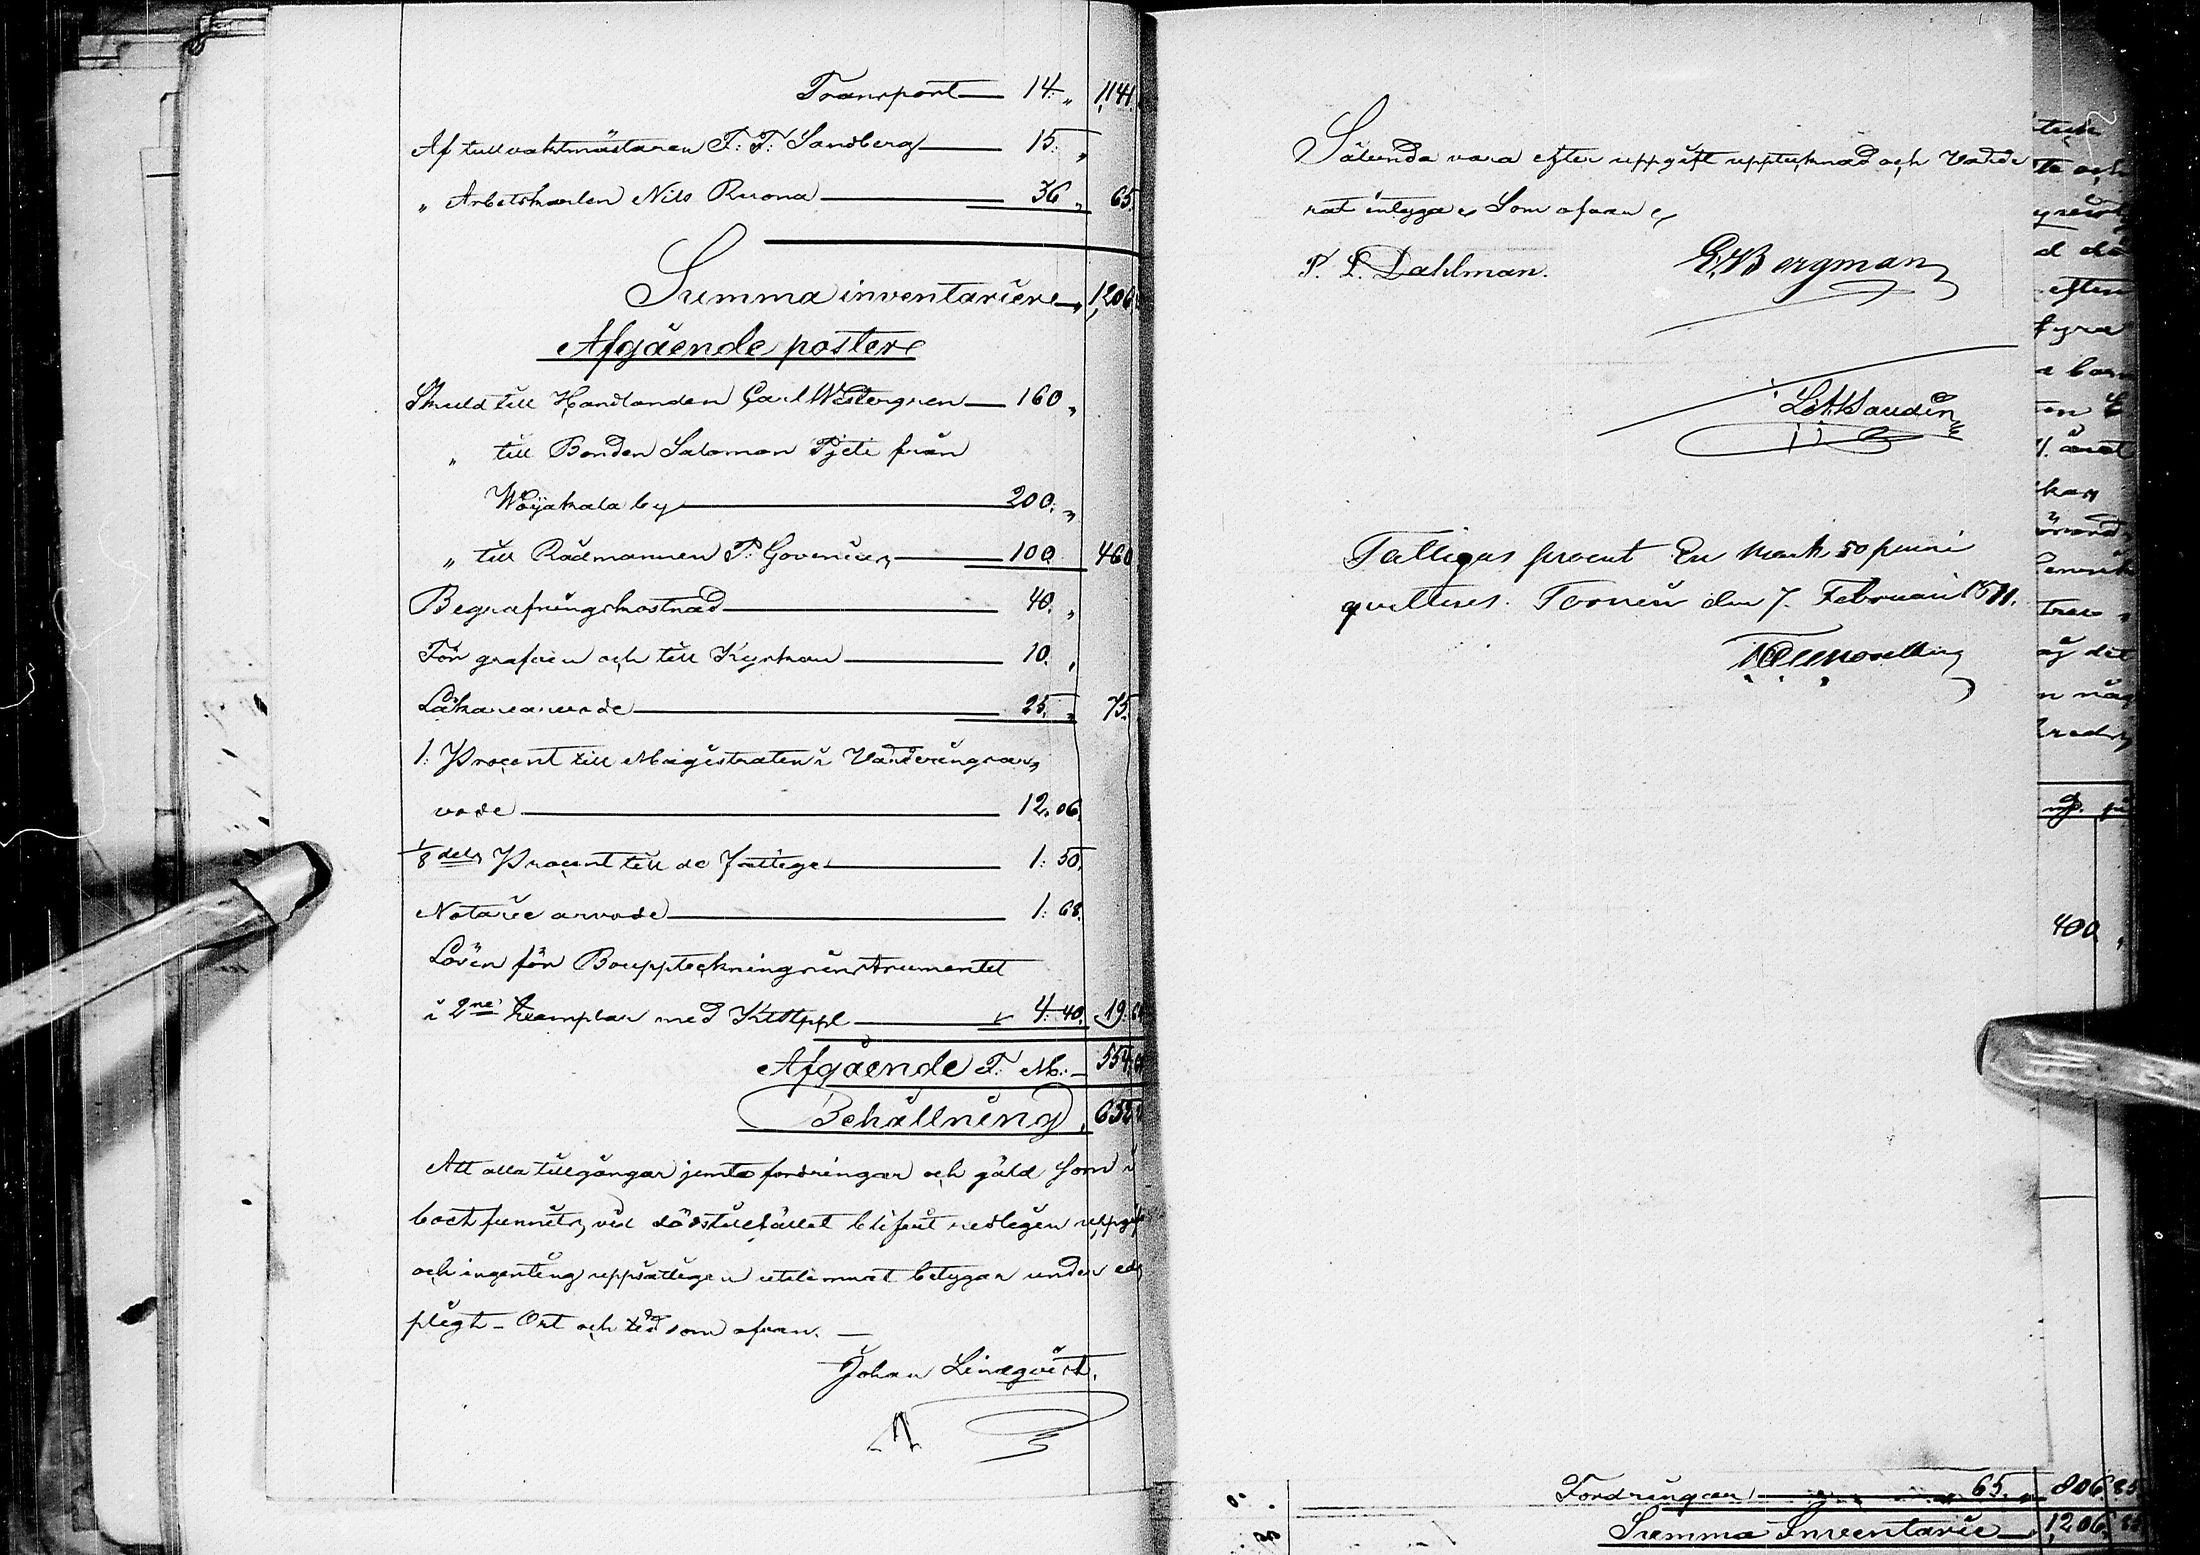 Transport 14. „ 1,141.
Af tullvaktmästaren F. F. Sandberg 15. „
„ Arbetskarlen Nils Ruona 36 „ 65.
Summa inventarier 1,206.
Afgående poster
Skuld till Handlanden Carl Westergren 160 „
„ till Bonden Salomon Pjeti från
Wojakala by 200. „
„ till Rådmannen P. Govenius 100 460
Begrafningskostnad 40. „
För grafven och till Kyrkan 10. „
Läkarearvode 25. „ 75.
1. Procent till Magistraten i Värderingsar
vode 12. 06.
1/8 dels Procent till de fattige 1: 50.
Notarie arvode 1: 68.
Lösen för Bouppteckningsinstrumentet
i 2ne Exemplar med 4. 40. 19. 64
Afgående F. M. 554.
Behållning 652
Att alla tillgångar jemte fordringar och gäld som i
boet funnits vid dödstillfället blifvit redligen uppgif
och ingenting uppsåtligen utelemnat betygar under ed
pligt – Ort och tid som ofvan. –
Johan Lindqvist.
Sålunda vara efter uppgift upptecknad och Värde
rat intyga Som ofvan
P. L. Dahlman. E. Bergman
Fattigas procent En mark 50 penni
qvitteras. Torneå den 7. Februari
400 „
Fordringar 65. „ 806. 85
Summa Inventarie 1,206.